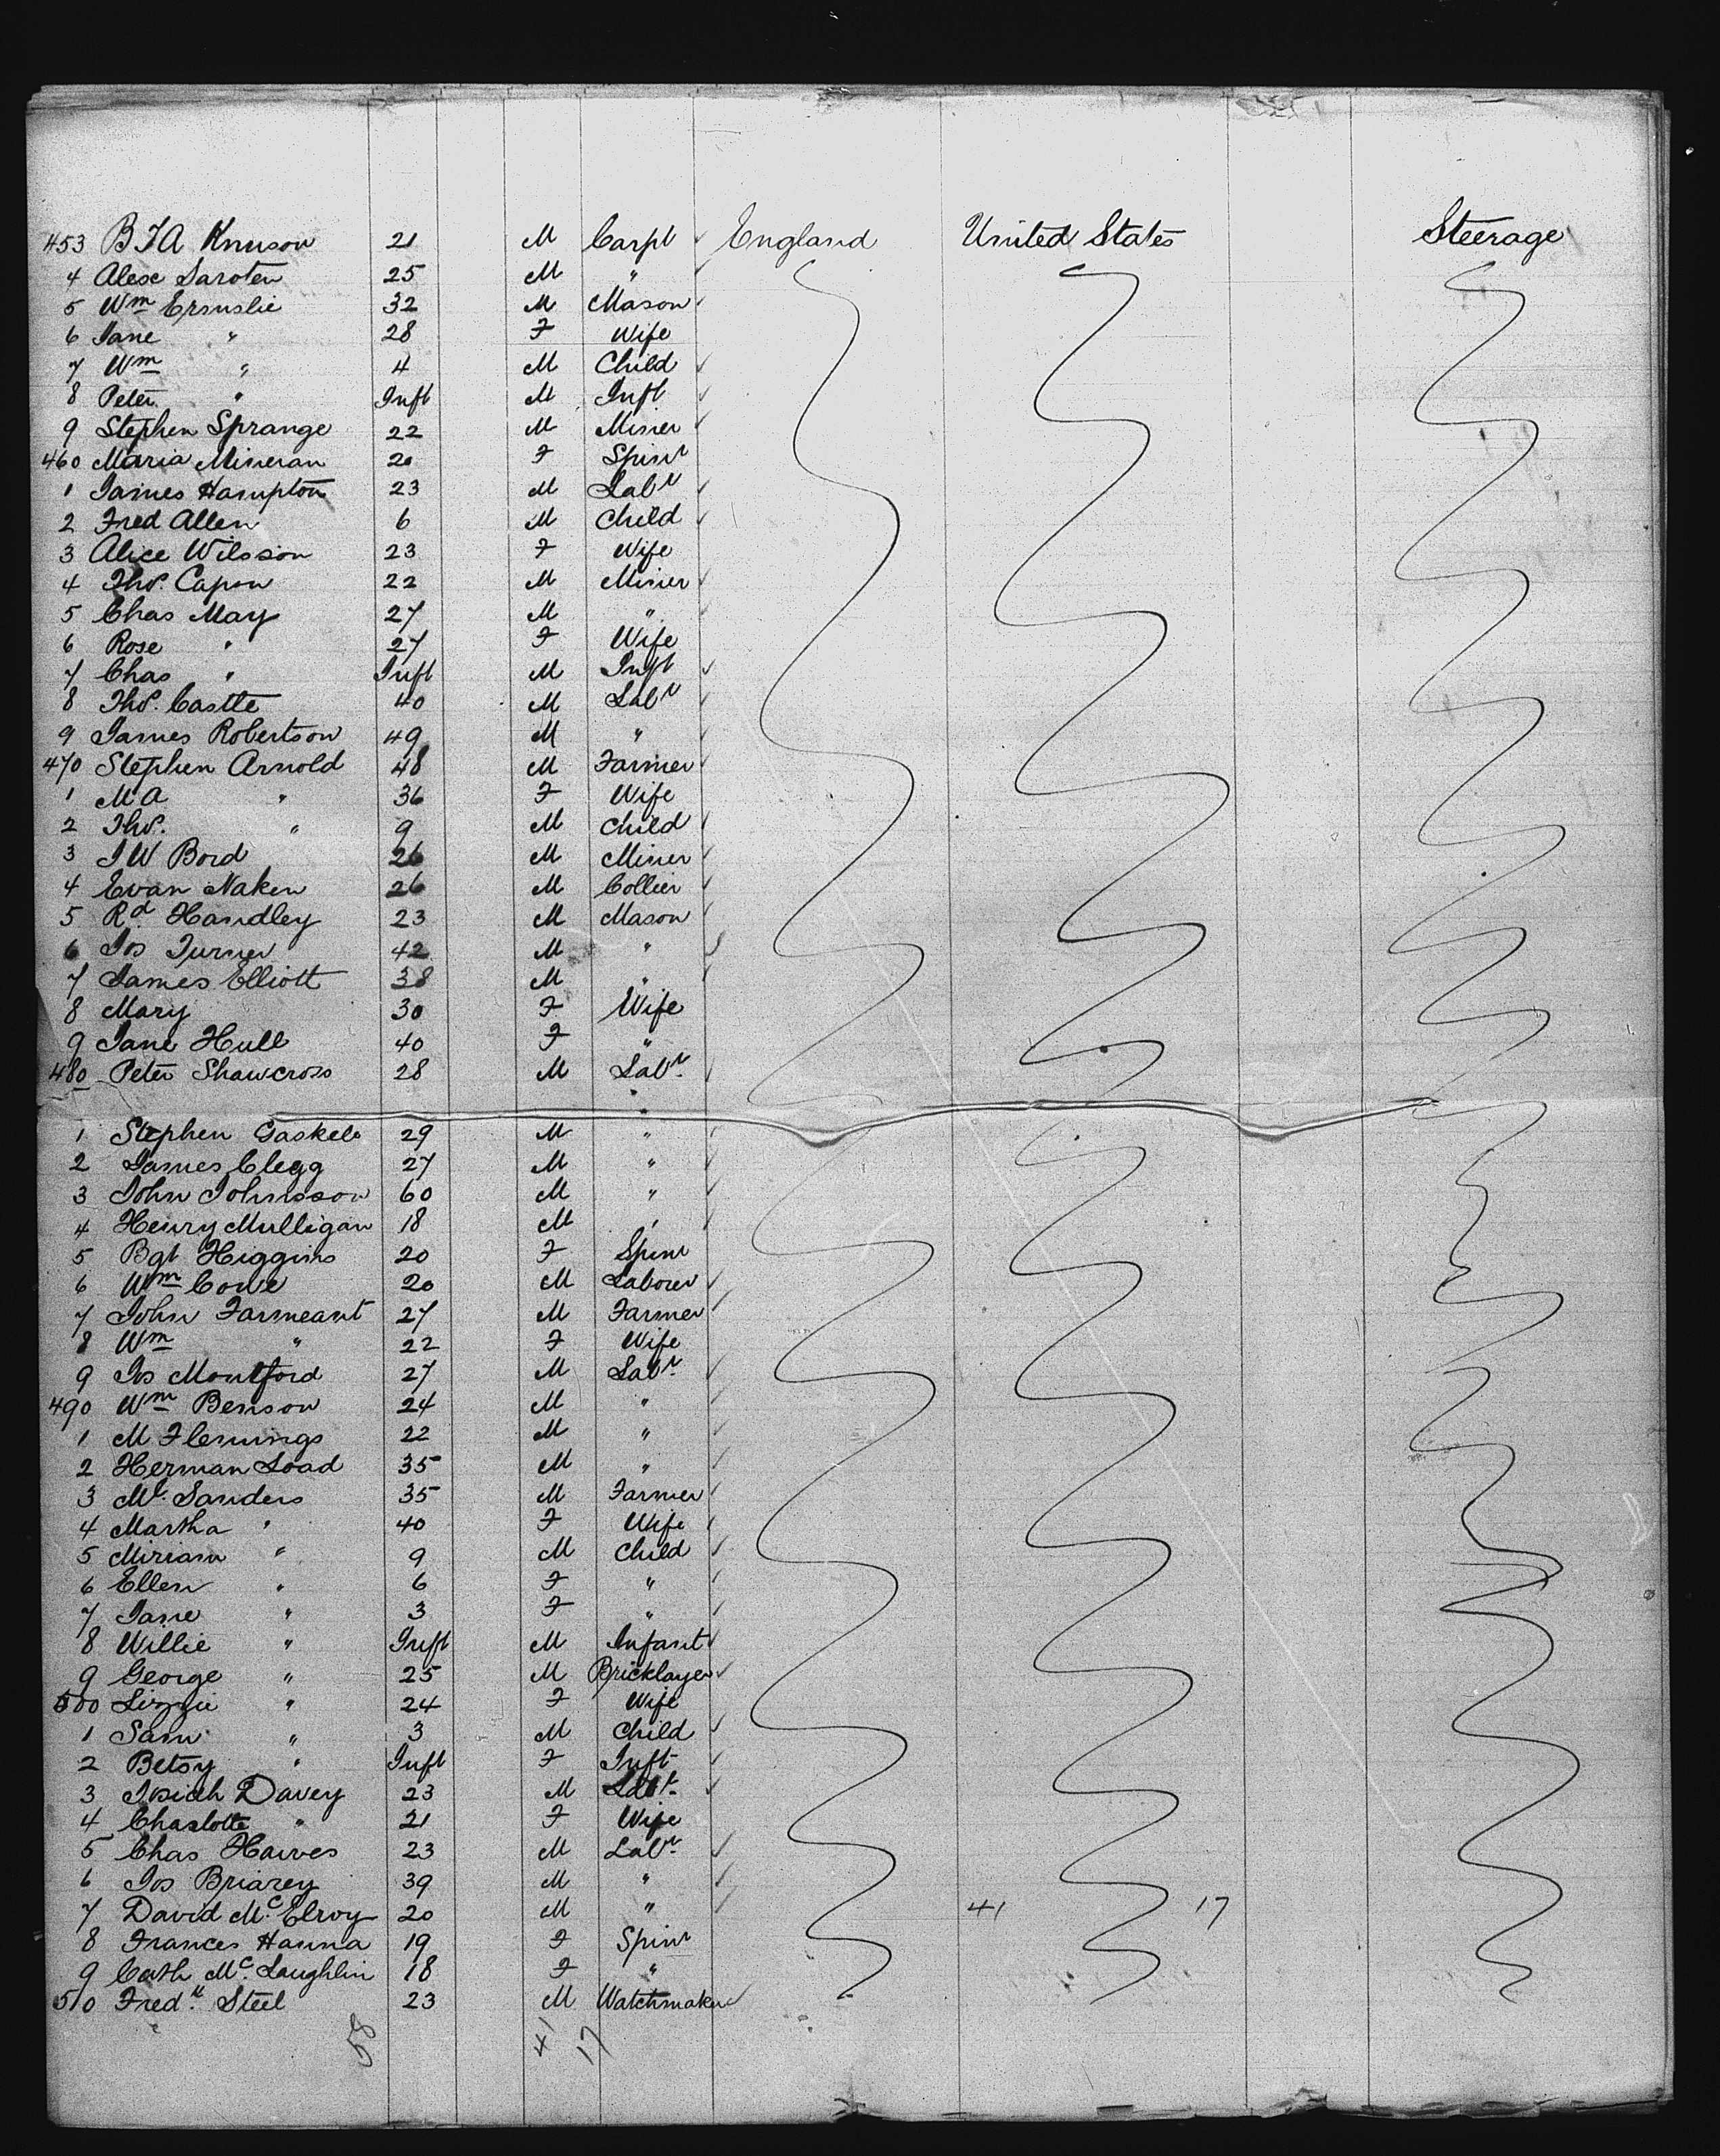 453 BJA Knuson 21 M Carpt England United States Steerage
4 Alexr Saroten 25 M "
5 Wm Ermslie 32 M Mason
6 Jane " 28 F Wife
7 Wm " 4 M Child
8 Peter " Inft M Inft
9 Stephen Sprange 22 M Miner
460 Maria Mineran 20 F Spinr
1 James Hampton 23 M Labr
2 Fred Allen 6 M Child
3 Alice Wilsson 23 F Wife
4 Thos. Capon 22 M Miner
5 Chas May 27 M "
6 Rose " 27 F Wife
7 Chas " Inft M Inft
8 Thos. Castle 40 M Labr
9 James Robertson 49 M "
470 Stephen Arnold 48 M Farmer
1 M A " 36 F Wife
2 Thos. " 9 M Child
3 J W Bord 26 M Miner
4 Evan Naken 26 M Collier
5 Rd Handley 23 M Mason
6 Jos Turner 42 M "
7 James Elliott 38 M "
8 Mary 30 F Wife
9 Jane Hull 40 F "
480 Peter Shawcross 28 M Labr
"
1 Stephen Gaskell 29 M "
2 James Clegg 27 M "
3 John Johnsson 60 M "
4 Henry Mulligan 18 M "
5 Bgt Higgins 20 F Spinr
6 Wm Cowe 20 M Laborer
7 John Farmeant 27 M Farmer
8 Wm " 22 F Wife
9 Jos Montford 27 M Labr
490 Wm Benson 24 M "
1 M Flemings 22 M "
2 Herman Load 35 M "
3 Mr. Sanders 35 M Farmer
4 Martha " 40 F Wife
5 Miriam " 9 M Child
6 Ellen " 6 F "
7 Jane " 3 F "
8 Willie " Inft M Infant
9 George " 25 M Bricklayer
500 Lizzie " 24 F Wife
1 Sam " 3 M Child
2 Betsy " Inft F Inft
3 Isiah Davey 23 M Labr.
4 Charlotte " 21 F Wife
5 Chas Hawes 23 M Labr.
6 Jos Briarey 39 M "
7 David Mc.Elroy 20 M " 41 17
8 Frances Hanna 19 F Spinr
9 Cath Mc.Laughlin 18 F "
510 Fredk. Steel 23 M Watchmaker
58 41 17